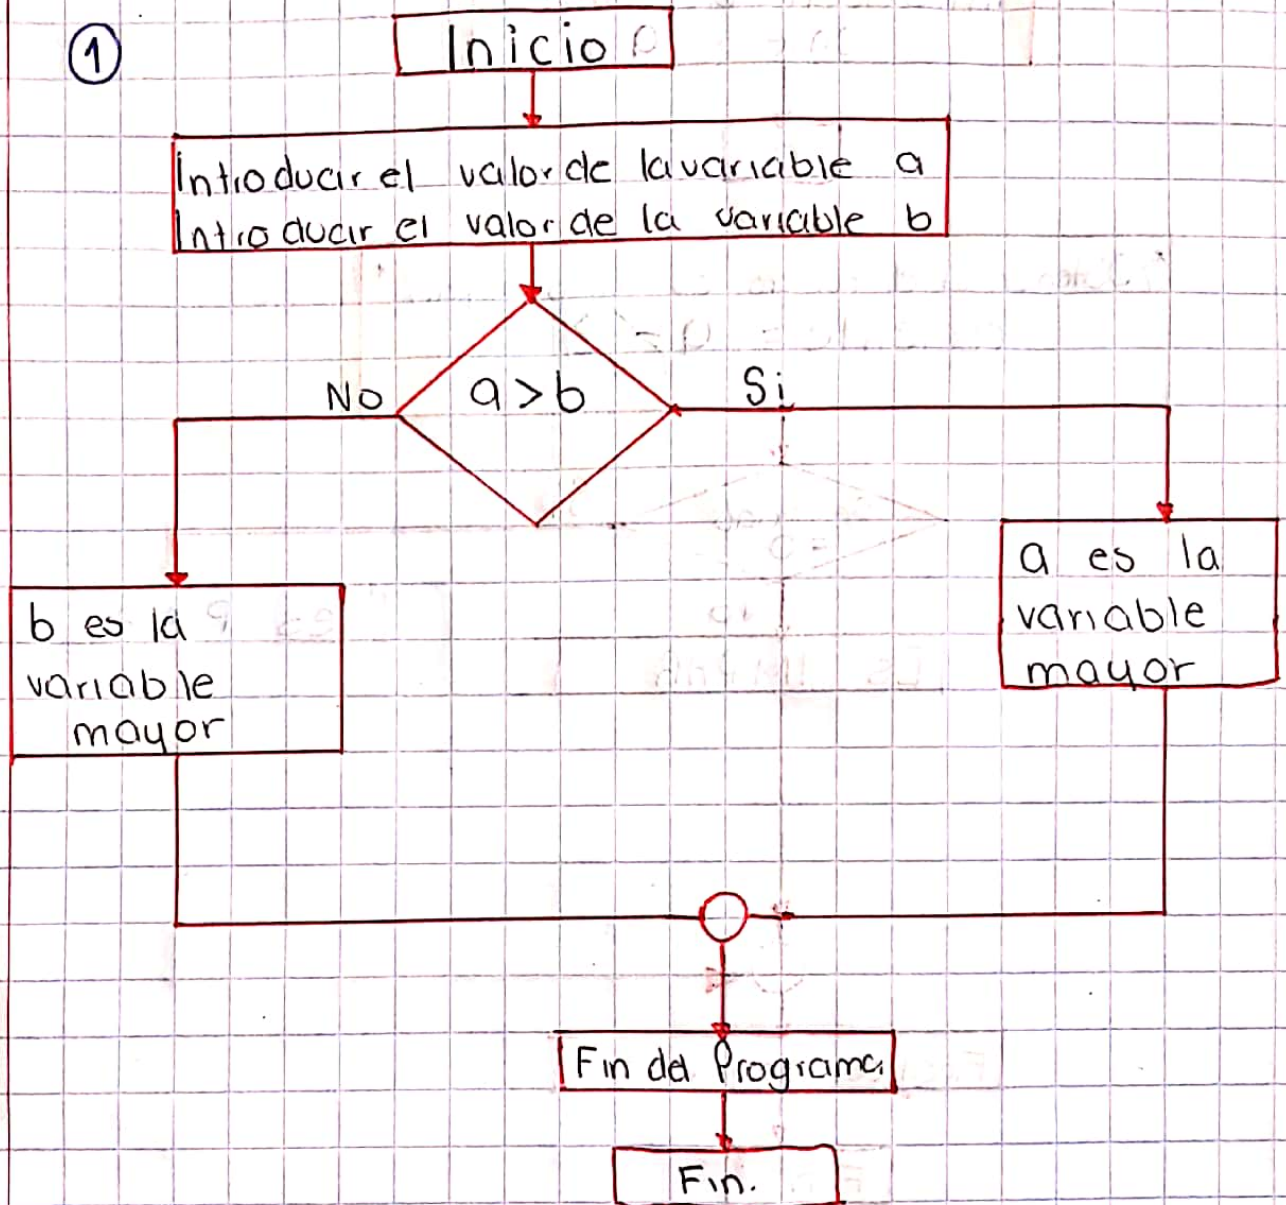 1
Inicio
Introducir el valor de la variable a
Introducir el valor de la variable b
a > b
No
Si
a es la
variable
mayor
b es la
variable
mayor
Fin del Programa
Fin.